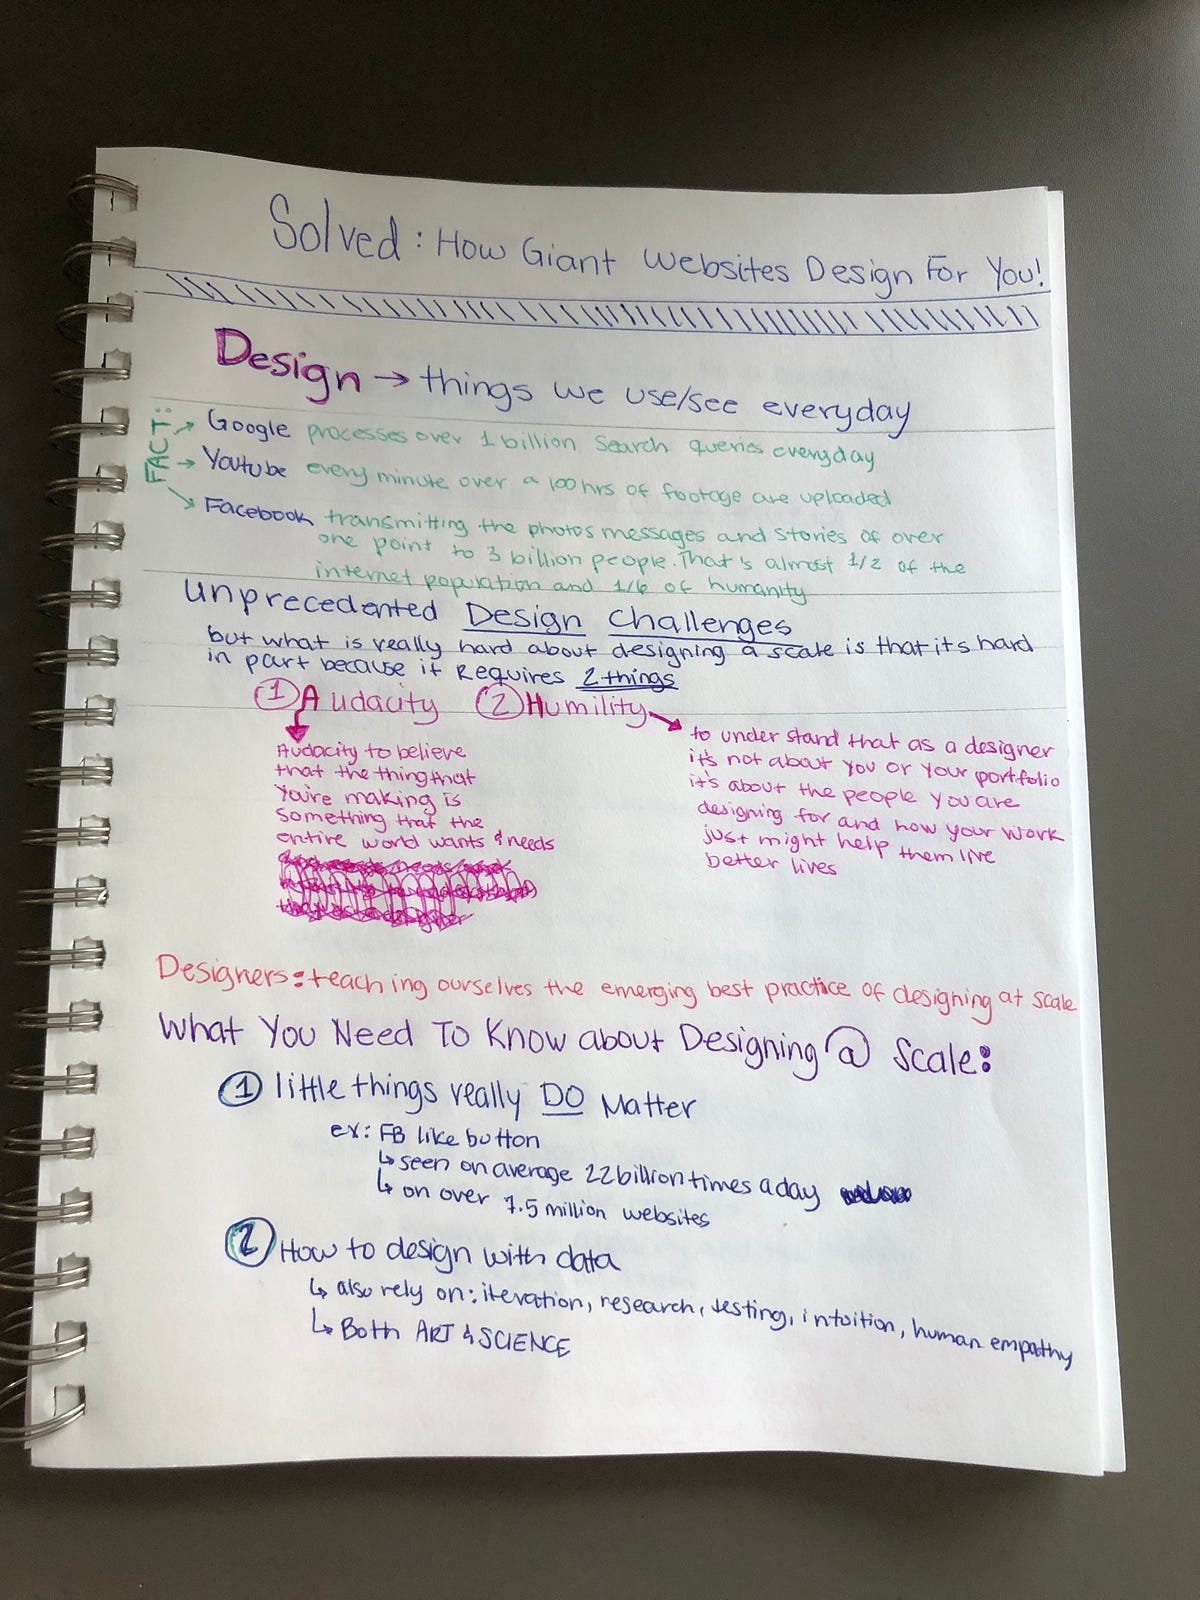 Solved: How Giant Websites Design For You!
Design → things we use/see everyday
FACT:
→ Google processes over 1 billion search queries everyday
→ Youtube every minute over a 100hrs of footage are uploaded
→ Facebook transmitting the photos messages and stories of over
one point to 3 billion people. That's almost 1/2 of the
internet population and 1/6 of humanity
unprecedented Design Challenges
but what is really hard about designing a scale is that its hard
in part because it requires 2 things
① Audacity ② Humility
Audacity to believe
that the thing that
You're making is
something that the
entire world wants & needs
to understand that as a designer
it's not about you or your portfolio
it's about the people you are
designing for and how your work
just might help them live
better lives
Designers: teaching ourselves the emerging best practice of designing at scale
What You Need To Know about Designing @ Scale:
① little things really DO Matter
ex: FB like button
↳ seen on average 22 billion times a day
↳ on over 7.5 million websites
② How to design with data
↳ also rely on: iteration, research, testing, intuition, human empathy
↳ Both ART & SCIENCE